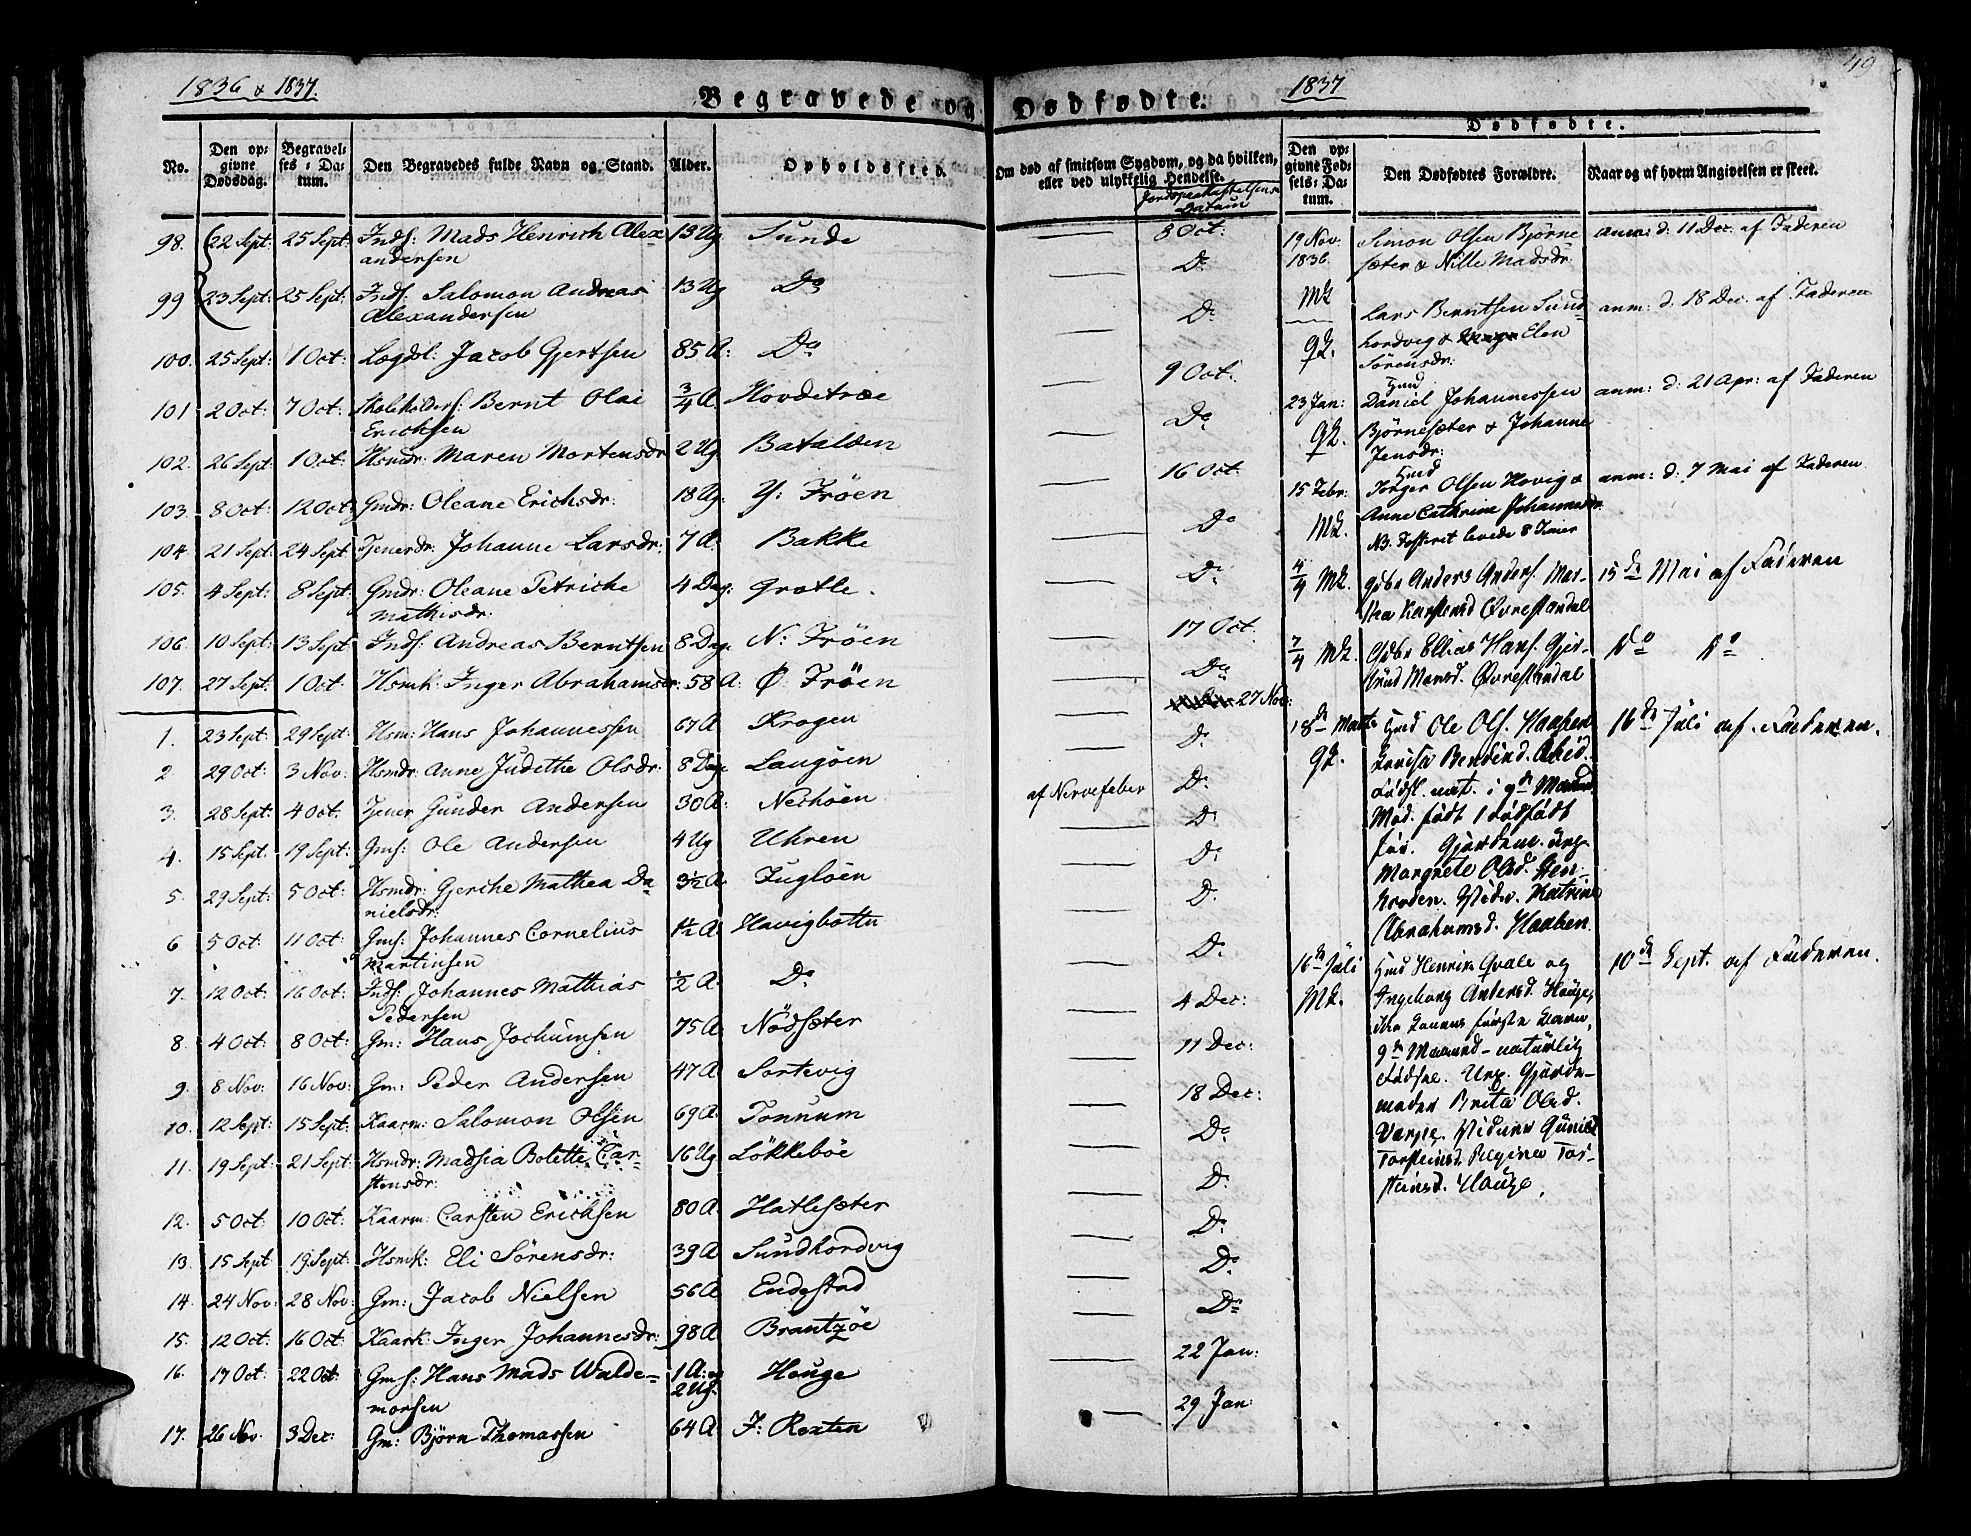 1836 & 1837.
Begravede og
No.
Den opgivne Dødsdag.
Begravelses-Datum.
Den Begravedes fulde Navn og Stand.
Alder.
Opholdssted.
98. 22 Sept: 25 Sept: Inds: Mads Henrich Alex 13 Ug Sunde
andersen
99 23 Sept: 25 Sept: Inds: Salomon Andreas 13 Ug Do
Alexandersen
100. 25 Sept: 1 Oct: Lægdsl: Jacob Gjertsen 85 A: Do
101 2 Oct: 7 Oct: Skoleholders: Bernt Olai 3/4 A. Hovdetræe
Erichsen
102. 26 Sept 1 Oct: Hsmdr: Maren Mortensdr 2 Ug Batalden
103. 8 Oct: 12 Oct: Gmdr: Oleane Erichsdr: 18 Ug. Y: Frøen
104. 21 Sept: 24 Sept Tjenerdr: Johanne Larsdr: 7 A. Bakke
105. 4 Sept: 8 Sept: Gmdr: Oleane Petriche 4 Dag: Grotle.
Mathisdr:
106. 10 Sept: 13 Sept Inds: Andreas Berntsen 8 Dage N: Frøen
107. 27 Sept: 1 Oct Hsmk: Inger Abrahamsdr: 58 A: Ø: Frøen
1. 23 Sept: 29 Sept: Hsm: Hans Johannessen 67 A Krogen
2 29 Oct: 3 Nov: Hsmdr: Anne Judethe Olsdr: 8 Dage Langøen
3. 28 Sept: 4 Oct: Tjener Gunder Andersen 30 A: Neshøen
4. 15 Sept. 19 Sept: Gms: Ole Andersen 4 Ug Uhren
5. 29 Sept: 5 Oct: Hsmdr: Gjerche Mathea Da 3½ A. Fugløen
nielsdr:
6 5 Oct: 11 Oct: Gms: Johannes Cornelius 1½ A: Havigbottn
Martinsen
7. 12 Oct: 16 Oct: Inds: Johannes Matthias ½ A. Do
Pedersen
8. 4 Oct: 8 Oct: Gm: Hans Jochumsen 75 A: Nødsæter
9. 8 Nov: 16 Nov: Gm: Peder Andersen 47 A Sortevig
10. 12 Sept: 15 Sept: Kaarm: Salomon Olsen 69 A: Tonnum
11. 19 Sept: 21 Sept: Hsmdr: Madsia Bolette Car- 16 Ug Løkkebøe
stensdr:
12. 5 Oct: 10 Oct: Kaarm: Carsten Erichsen 80 A: Hatlesæter
13. 15 Sept 19 Sept Hsmk: Eli Sørensdr: 39 A Sundhordvig
14. 24 Nov: 28 Nov: Gm: Jacob Nielsen 56 A Endestad
15. 12 Oct: 16 Oct: Kaark: Inger Johannesdr: 98 A Brantzøe
16. 17 Oct: 22 Oct: Gms: Hans Mads Walde- 1 A: og Houge
morsen 2 Ug.
17. 26 Nov. 3 Dec: Gm: Bjørn Thomassen 64 A: I: Rexten
1837
49
Dødfødte.
Om død af smitsom Sygdom, og da hvilken, eller ved ulykkelig Hendelse.
Jordspaakastelsens Datum
Dødfødte.
Den opgivne Fødsels-Datum.
Den Dødfødtes Forældre.
Naar og af hvem Angivelsen er skeet.
8 Oct:
Do
Do
9 Oct:
Do
16 Oct:
Do
Do
17 Oct.
Do
27 Nov:
Do
af Nervefeber Do
Do
Do
Do
Do
4 Dec:
11 Dec:
18 Dec:
Do
Do
Do
Do
Do
22 Jan:
29 Jan:
19 Nov. Simon Olsen Bjørne anm: d: 11 Dec. af Faderen
1836. sæter & Nille Madsdr:
MK Lars Berntsen Sund anm: d. 18 Dec. af Faderen
QK. hordvig & Elen
Sørensdr:
Gmd
23 Jan: Daniel Johannessen anm: d: 21 Apr: af Faderen
QK. Bjørnesæter & Johanne
Jensdr:
Gmd
15 Febr: Torger Olsen Hovig & anm: d: 7 Mai af Faderen
MK. Anne Cathrine Johannesdr
NB. Fosteret levede 8 Timer
4/4 MK. Gdbr Anders Anders. Mar- 15de Mai af Faderen
tha Karstensd Øvrestandal
7/4 MK. Gdbr Ellias Hans. Gjer- Do Do
trud Monsd. Øvrestandal
18de Marts Gmd Ole Ols. Haaben 16de Juli af Faderen.
QK. Lovisa Bendixd. Alid.
Fødsl. nat. i 9de Maaned
Mod. født 1 dødfødt
før. Gjordem. uex.
Margrete Olsd. Hen-
norden. Vidn. Katrine
Abrahamsd. Haaben.
16de Juli Gmd Henrik Qvale og 10de Sept. af Faderen.
MK. Ingeborg Andersd. Houge,
the Konens første Barn,
9de Maaned - naturlig
Fødsel. Uex. Gjorde-
moder Brita Olsd.
Varpe. Vidner Gunild
Torsteinsd. Regine Tor-
steinsd. Houge.